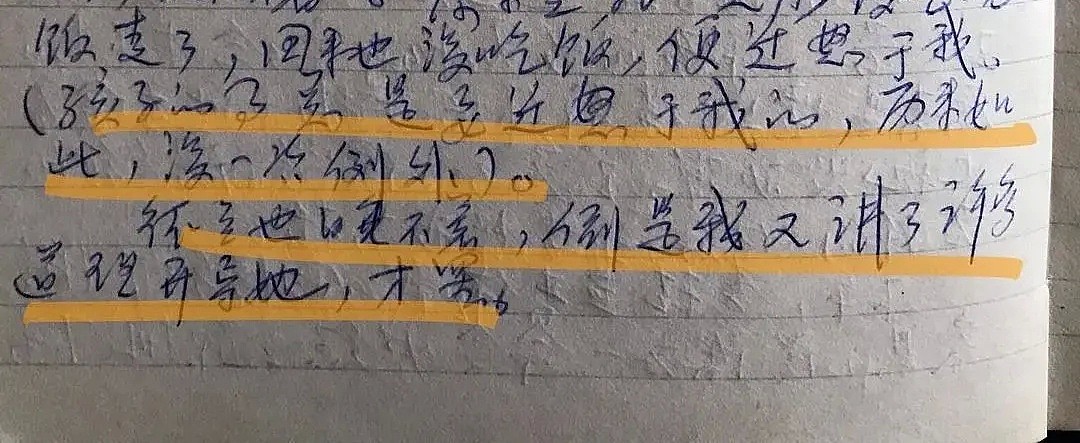 饭走了，回来也没吃饭，便迁怒于我。
（孩子的事总是要迁怒于我的，历来如
此，没一次例外）。
也睡不着，倒是我又讲了许多
道理开导她，才罢。